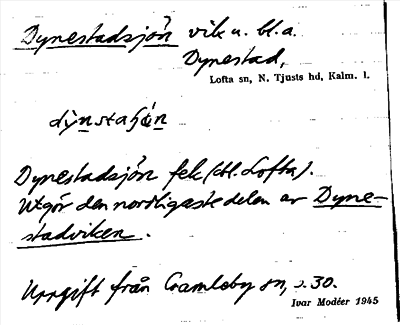 Dynestadsjön vik u. bl. a.
Dynestad,
Lofta sn, N. Tjusts hd, Kalm. l.
Dynestadsjön fek (ctl. Lofta).
Utgör den nordligaste delen av Dyne-
stadviken.
Uppgift från Gamleby sn, s. 30.
Ivar Modéer 1945